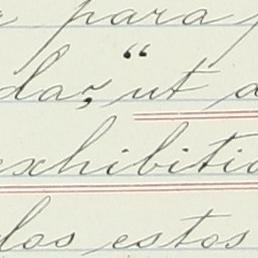 para
dar, “ut
exhibitio
los estos